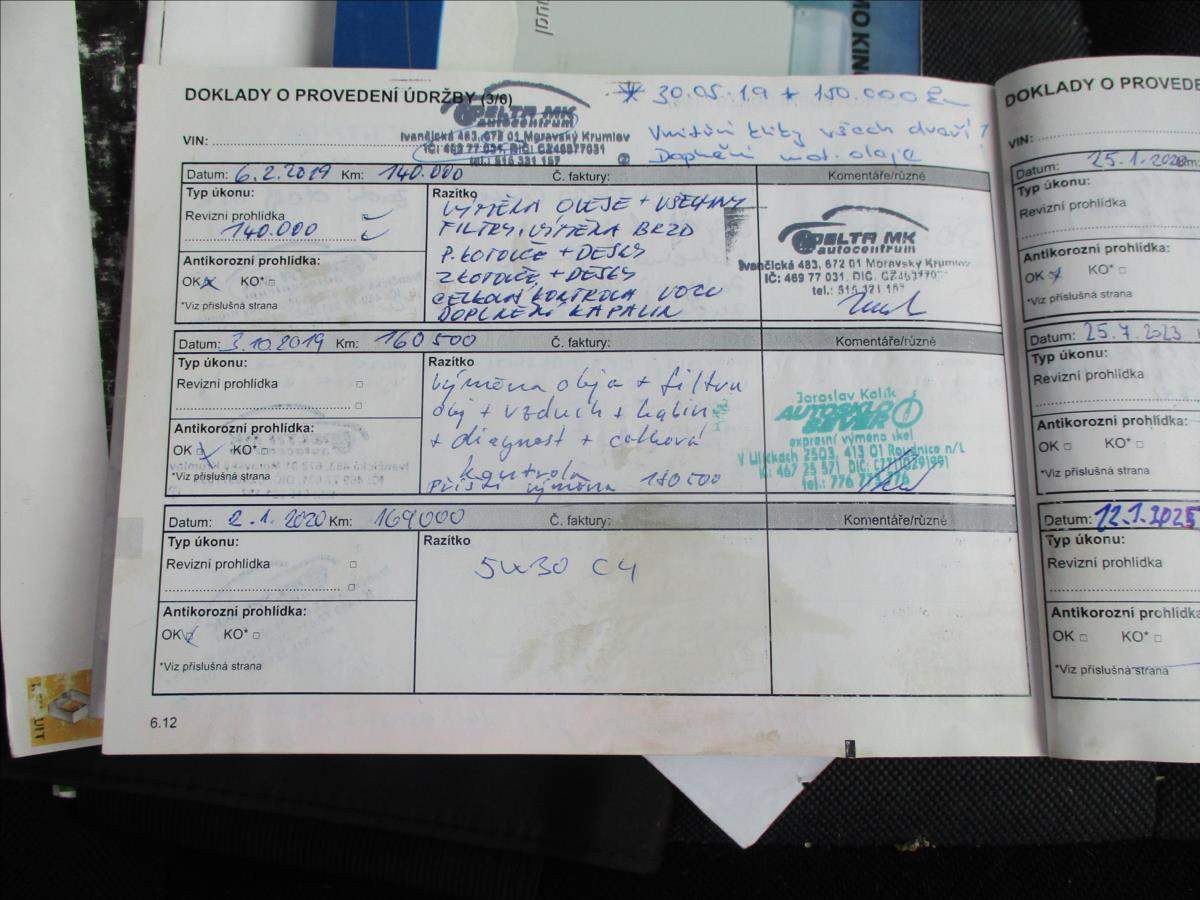 MO KIN
DOKLADY O PROVEDENÍ ÚDRŽBY (3/6)
OPELTA MK
autocentrum
Ivančická 483, 672 01 Moravský Krumlov
IČ: 469 77 031, DIČ: CZ46977031
tel.: 515 321 157
30.05.19 + 150.000
Vnitřní kliky všech dveří
Doplnění mot. oleje
VIN:
Datum: 6.2.2019 Km: 140.000 Č. faktury: Komentáře/různé
Typ úkonu:
Revizní prohlídka
140.000
Antikorozní prohlídka:
OK KO*
*Viz příslušná strana
Razítko
VÝMĚNA OLEJE + VŠECHNY
FILTRY, VÝMĚNA BRZD
P. KOTOUČE + DESKY
Z KOTOUČE + DESKY
CELKOVÁ KONTROLA VOZU
DOPLNĚNÍ KAPALIN
OPELTA MK
autocentrum
Ivančická 483, 672 01 Moravský Krumlov
IČ: 469 77 031, DIČ.
tel.: 515 321 157
Datum: 3.10.2019 Km: 160500 Č. faktury: Komentáře/různé
Typ úkonu:
Revizní prohlídka
Antikorozní prohlídka:
OK KO*
*Viz příslušná strana
Razítko
výměna oleja + filtru
olej + vzduch + kabin
+ diagnost + celková
kontrola
Příští výměna 180500
Jaroslav Kolík
AUTOSKLO
BEVER
expresní výměna skel
V Uličkách 2503, 413 01 Roudnice n/L
467 25 571 DIČ:
tel.: 776
Datum: 2.1.2020 Km: 164000 Č. faktury: Komentáře/různé
Typ úkonu:
Revizní prohlídka
Antikorozní prohlídka:
OK KO*
*Viz příslušná strana
Razítko
5W30 C4
6.12
DOKLADY O PROVEDE
VIN:
Datum: 25.1. Km:
Typ úkonu:
Revizní prohlídka
Antikorozní prohlídka:
OK KO*
*Viz příslušná strana
Datum: 25.7.2023
Typ úkonu:
Revizní prohlídka
Antikorozní prohlídka:
OK KO*
*Viz příslušná strana
Datum: 12.1.2025
Typ úkonu:
Revizní prohlídka
Antikorozní prohlídka
OK KO*
*Viz příslušná strana